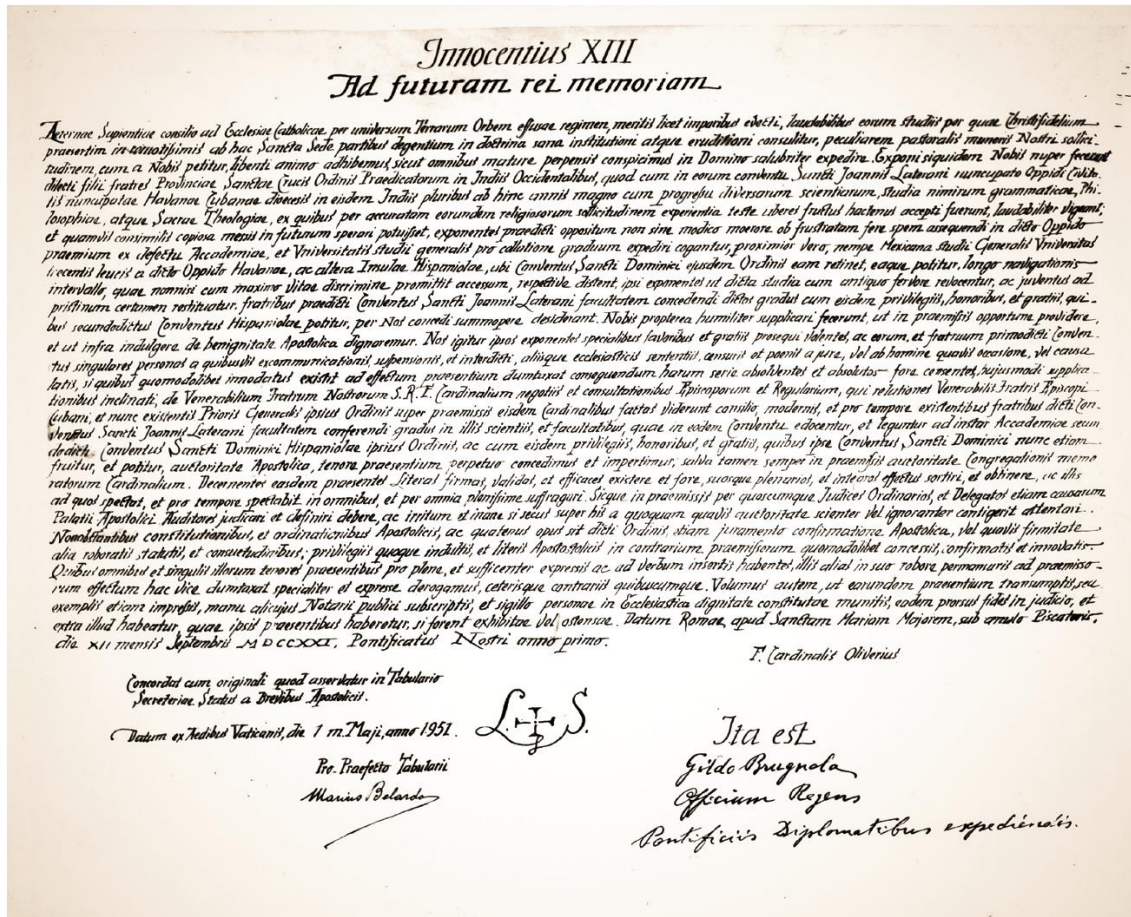 Innocentius XIII
Ad futuram rei memoriam
Aeternae Sapientiae consilio ad Ecclesiae Catholicae per universum Terrarum Orbem effusae regimen, meritis licet imparibus evecti, laudabilibus eorum studiis per quae Christifidelium
praesertim in remotissimis ab hac Sancta Sede partibus degentium in doctrina sana institutioni atque eruditioni consulitur, peculiarem pastoralis muneris Nostri sollici-
tudinem, cum a Nobis petitur, libenti animo adhibemus, sicut omnibus mature perpensis conspicimus in Domino salubriter expedire. Exponi siquidem Nobis nuper fecerunt
dilecti filii fratres Provinciae Sanctae Crucis Ordinis Praedicatorum in Indiis Occidentalibus, quod cum in eorum conventu Sancti Joannis Laterani nuncupato Oppidi Civita-
tis nuncupatae Havanae Cubanae dioecesis in eisdem Indiis pluribus ab hinc annis magno cum progressu diversarum scientiarum, studia nimirum grammaticae, Phi-
losophiae, atque Sacrae Theologiae, ex quibus per accuratam eorundem religiosorum sollicitudinem experientia teste uberes fructus hactenus accepti fuerunt, laudabiliter vigeant;
et quamvis consimilis copiosa messis in futurum sperari potuisset, exponentes praedicti oppositum non sine modico moerore ob frustratam fere spem assequendi in dicto Oppido
praemium ex defectu Accademiae, et Vniversitatis studii generalis pro collatione graduum expediri cogantur, proximior vero, nempe Mexicana studii Generalis Vniversitas
trecentis leucis a dicto Oppido Havanae, ac altera Insulae Hispaniolae, ubi Conventus Sancti Dominici ejusdem Ordinis eam retinet, eaque potitur, longo navigationis
intervallo, quae nonnisi cum maximo vitae discrimine promittit accessum, respective distent, ipsi exponentes ut dicta studia cum antiquo fervore revocentur, ac juventus ad
pristinum certamen restituatur, fratribus praedicti Conventus Sancti Joannis Laterani facultatem concedendi dictos gradus cum eisdem privilegiis, honoribus, et gratiis, qui-
bus secundodictus Conventus Hispaniolae potitur, per Nos concedi summopere desiderant. Nobis propterea humiliter supplicari fecerunt, ut in praemissis opportune providere,
et ut infra indulgere de benignitate Apostolica dignaremur. Nos igitur ipsos exponentes specialibus favoribus et gratiis prosequi volentes, ac eorum, et fratruum primodicti Conven-
tus singulares personas a quibusvis excommunicationis, suspensionis, et interdicti, aliisque ecclesiasticis sententiis, censuris et poenis a jure, vel ab homine quavis occasione, vel causa
latis, si quibus quomodolibet innodatus existit ad effectum praesentium dumtaxat consequendum harum serie absolventes et absolutos fore censentes, hujusmodi supplica-
tionibus inclinati, de Venerabilium Fratrum Nostrorum S.R.E. Cardinalium negotiis et consultationibus Episcoporum et Regularium, qui relationes Venerabilis Fratris Episcopi
Cubani, et nunc existentis Prioris Generalis ipsius Ordinis super praemissis eisdem Cardinalibus factas viderunt consilio, modernis, et pro tempore existentibus fratribus dicti Con-
ventus Sancti Joannis Laterani facultatem conferendi gradus in illis scientiis, et facultatibus, quae in eodem Conventu edocentur, et leguntur ad instar Accademiae secun
dodicti Conventus Sancti Dominici Hispaniolae ipsius Ordinis, ac cum eisdem privilegiis, honoribus, et gratiis, quibus ipse Conventus Sancti Dominici nunc etiam
fruitur, et potitur, auctoritate Apostolica, tenore praesentium perpetuo concedimus et impertimur; salva tamen semper in praemissis auctoritate Congregationis memo
ratorum Cardinalium. Decernentes easdem praesentes Literas firmas, validas, et efficaces existere et fore, suosque plenarios, et integros effectus sortiri, et obtinere, ac illis
ad quos spectat, et pro tempore spectabit in omnibus, et per omnia plenissime suffragari. Sicque in praemissis per quoscumque Judices Ordinarios, et Delegatos etiam causarum
Palatii Apostolici Auditores judicari et definiri debere, ac irritum et inane si secus super his a quoquam quavis auctoritate scienter vel ignoranter contigerit attentari.
Nonobstantibus constitutionibus, et ordinationibus Apostolicis, ac quatenus opus sit dicti Ordinis, etiam juramento confirmatione Apostolica, vel quavis firmitate
alia roboratis statutis, et consuetudinibus; privilegiis quoque indultis, et literis Apostolicis in contrarium praemissorum quomodolibet concessis, confirmatis et innovatis.
Quibus omnibus et singulis illorum tenores praesentibus pro plene, et sufficenter expressis ac ad verbum insertis habentes, illis alias in suo robore permansuris ad praemisso-
rum effectum hac vice dumtaxat specialiter et expresse derogamus, ceterisque contrariis quibuscumque. Volumus autem, ut earundem praesentium transumptis, seu
exemplis etiam impressis, manu alicujus Notarii publici subscriptis, et sigillo personae in Ecclesiastica dignitate constitutae munitis, eadem prorsus fides in judicio, et
extra illud habeatur, quae ipsis praesentibus haberetur, si forent exhibitae vel ostensae. Datum Romae, apud Sanctam Mariam Majorem, sub anulo Piscatoris,
die XII mensis Septembris MDCCXXI, Pontificatus Nostri anno primo.
F. Cardinalis Oliverius
Concordat cum originali quod asservatur in Tabulario
Secreteriae Status a Brevibus Apostolicis.
Datum ex Aedibus Vaticanis, die 1 m. Maji, anno 1951.
L. S.
Pro. Praefecto Tabularii
Marius Belardo
Ita est
Gildo Brugnola
Officium Regens
Pontificiis Diplomatibus expediendis.